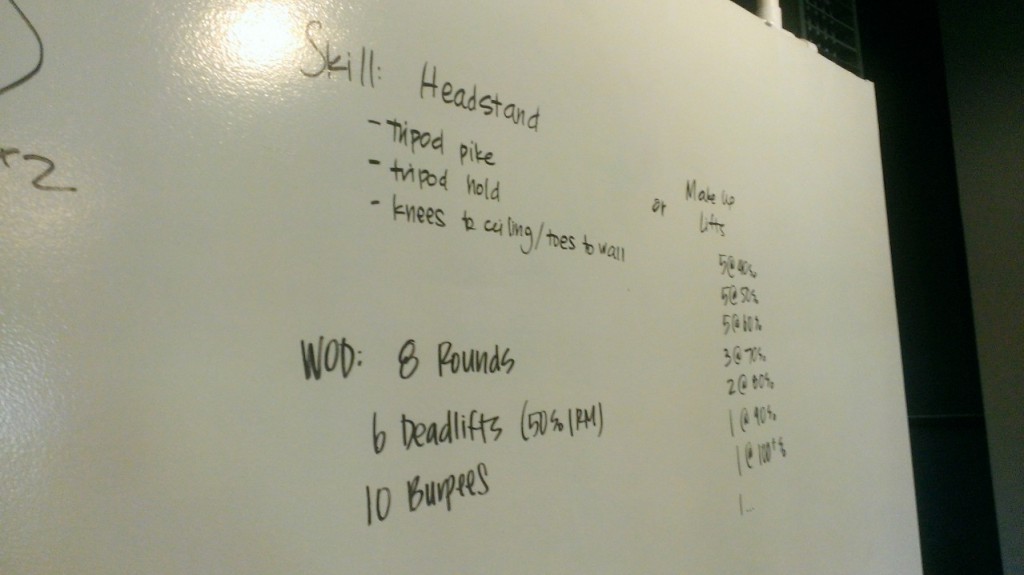 Skill: Headstand
- tripod pike
- tripod hold
- knees to ceiling/toes to wall
or Make up
Lifts
5@40%
5@50%
5@60%
3@70%
2@80%
1@90%
1@100+%
1...
WOD: 8 Rounds
6 Deadlifts (50% 1RM)
10 Burpees